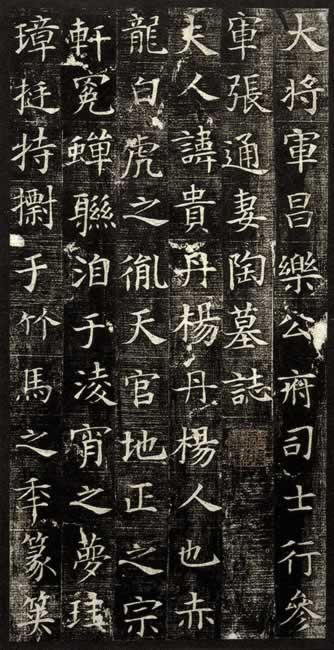 大將軍昌樂公府司士行參
軍張通妻陶墓誌
夫人諱貴丹楊丹楊人也赤
龍白虎之胤天官地正之宗
軒冕蟬聯洎于淩宵之夢珪
璋挺特于竹馬之年篆箕